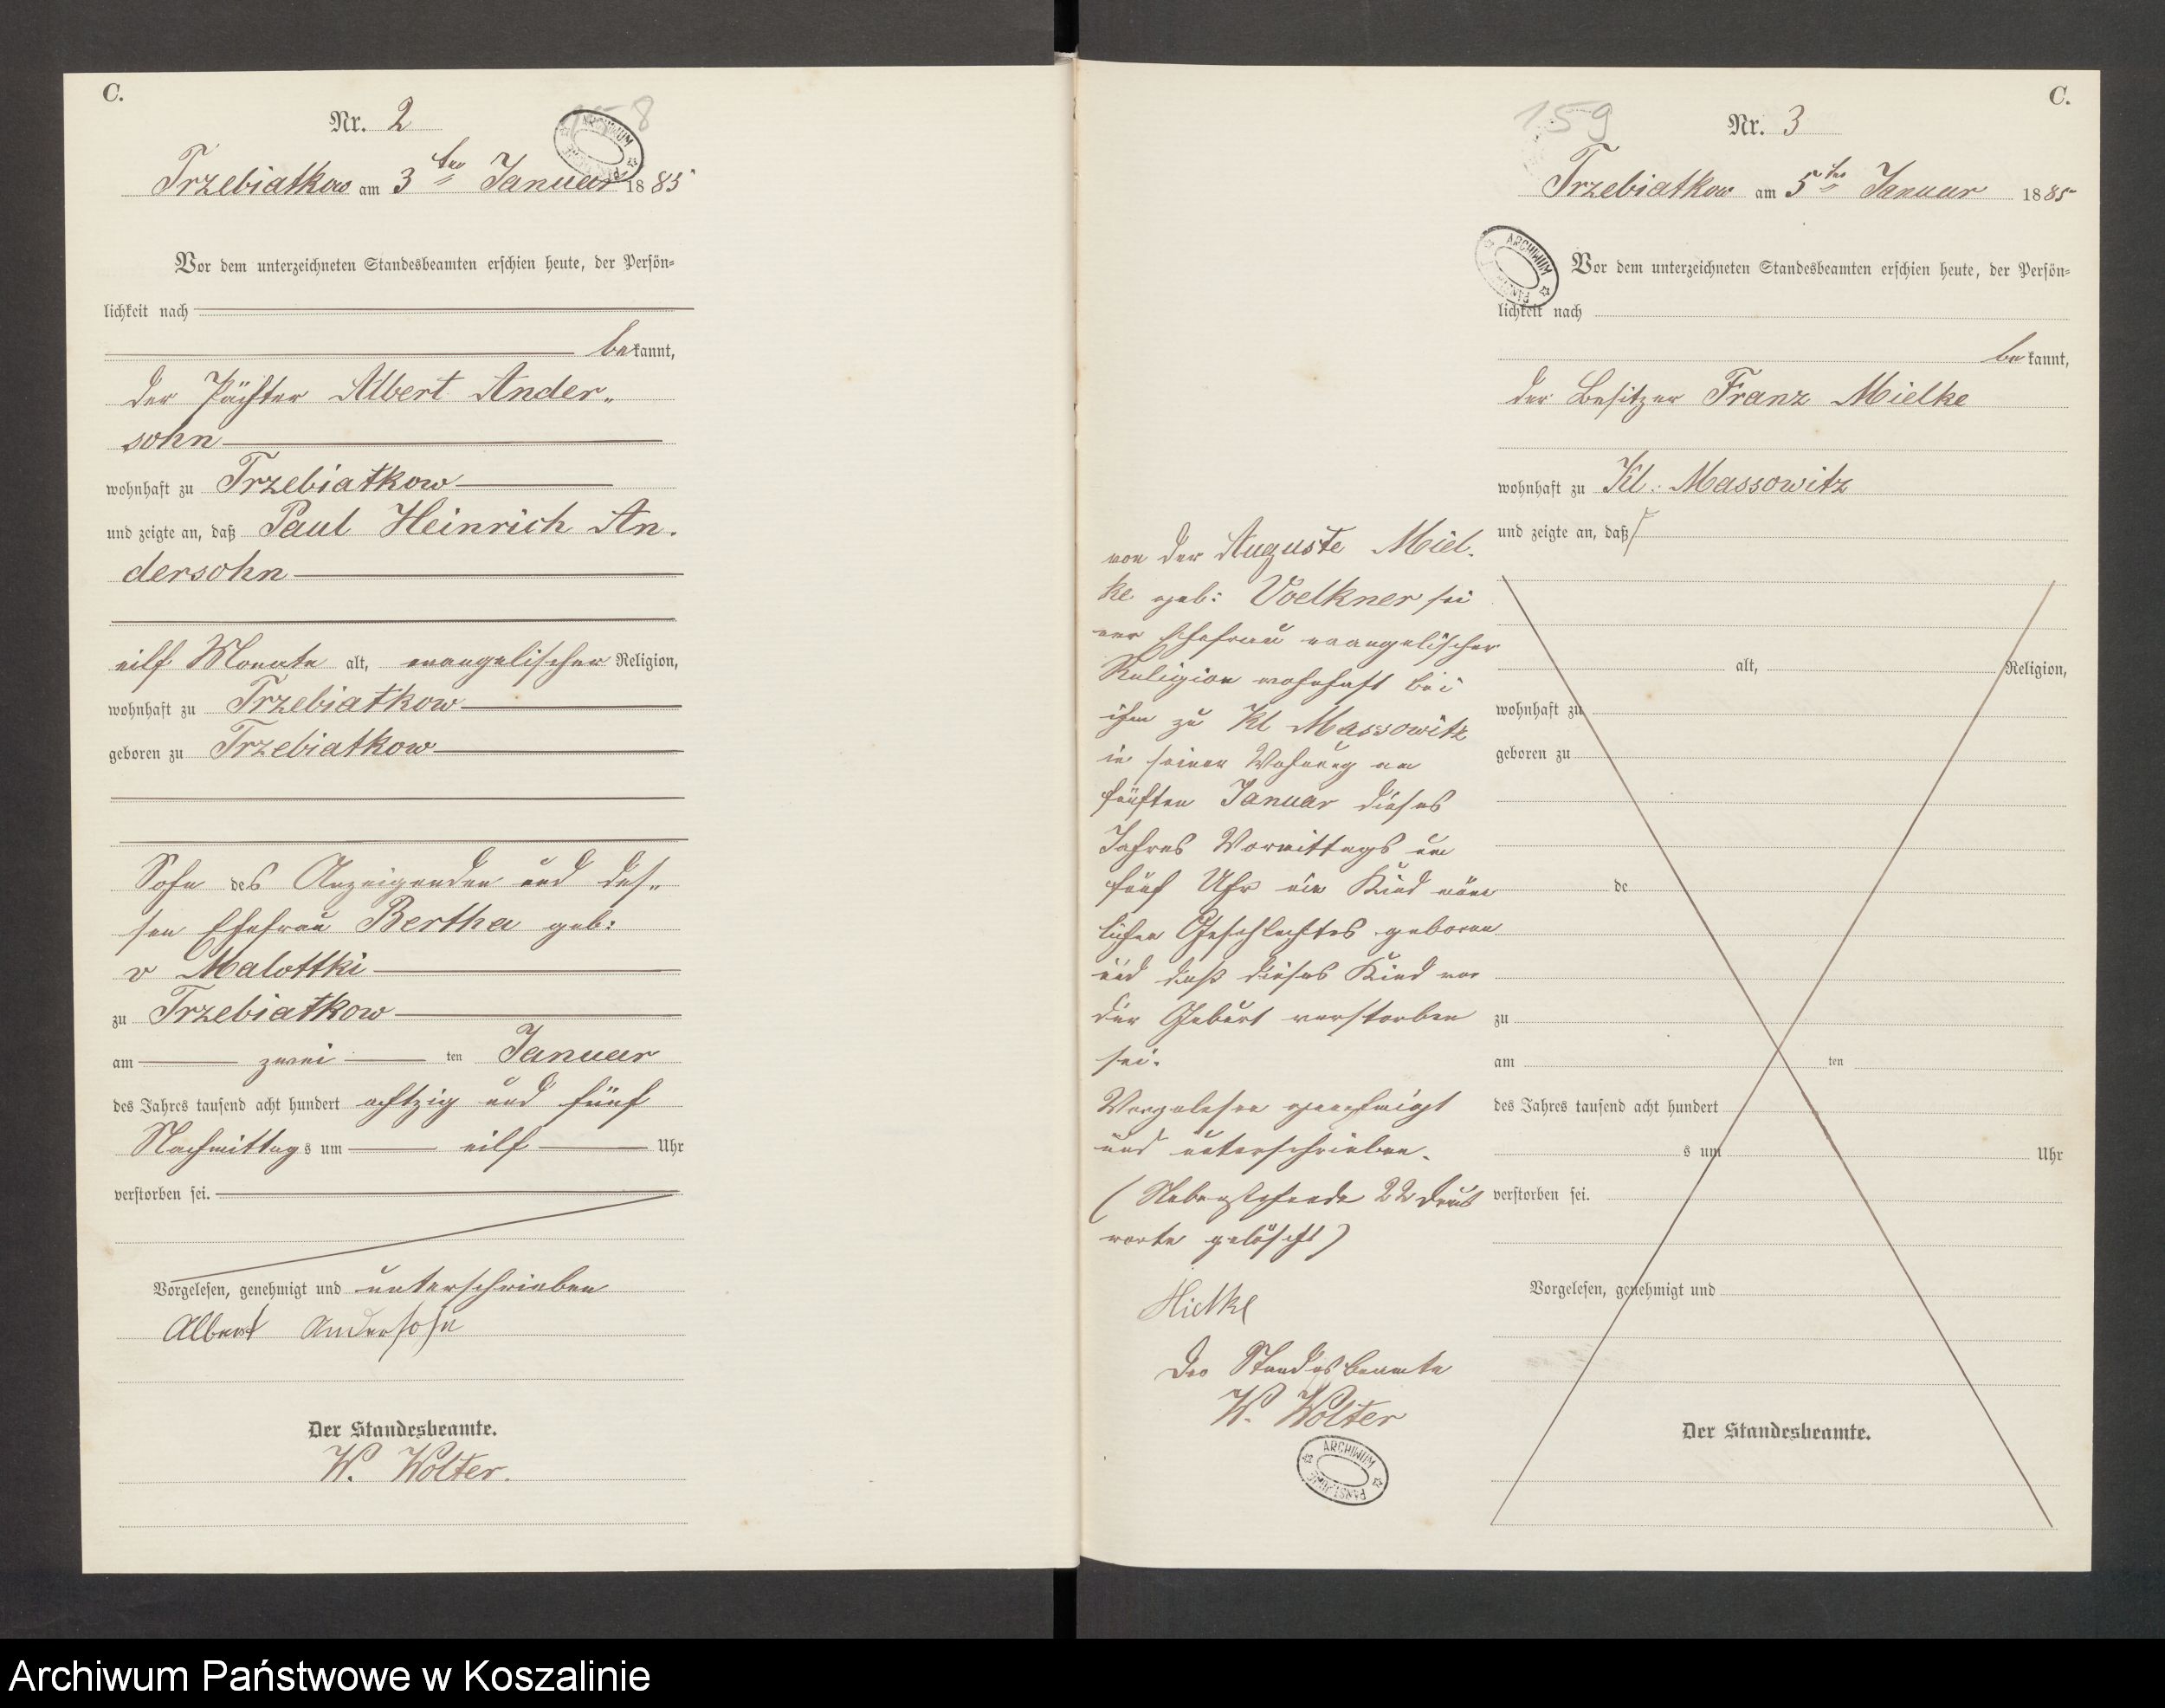 C.
Nr. 2
158
ARCHIWUM PAŃSTWOWE
Trzebiatkow am 3ten Januar 1885
Vor dem unterzeichneten Standesbeamten erschien heute, der Persön=
lichkeit nach
bekannt,
der Pächter Albert Ander-
sohn
wohnhaft zu Trzebiatkow
und zeigte an, daß Paul Heinrich An-
dersohn
eilf Monate alt, evangelischer Religion,
wohnhaft zu Trzebiatkow
geboren zu Trzebiatkow
Sohn des Anzeigenden und des-
sen Ehefrau Bertha geb:
v Malottki
zu Trzebiatkow
am zwei ten Januar
des Jahres tausend acht hundert achtzig und fünf
Nachmittags um eilf Uhr
verstorben sei.
Vorgelesen, genehmigt und unterschrieben
Albert Andersohn
Der Standesbeamte.
W. Wolter.
C.
159
Nr. 3
Trzebiatkow am 5ten Januar 1885
ARCHIWUM PAŃSTWOWE
Vor dem unterzeichneten Standesbeamten erschien heute, der Persön=
lichkeit nach
bekannt,
der Besitzer Franz Mielke
wohnhaft zu Kl. Massowitz
und zeigte an, daß
von der Auguste Miel-
ke geb: Voelkner sei
ner Ehefrau evangelischer
Religion wohnhaft bei
ihm zu Kl Massowitz
in seiner Wohnung am
fünften Januar dieses
Jahres Vormittags um
fünf Uhr ein Kind män
lichen Geschlechtes geboren
und daß dieses Kind vor
der Geburt verstorben
sei.
Vorgelesen genehmigt
und unterschrieben.
(Nebenstehende 22 Druck
worte gelöscht)
Mielke
Der Standesbeamte
W. Wolter
ARCHIWUM PAŃSTWOWE
alt, Religion,
wohnhaft zu
geboren zu
de
zu
am ten
des Jahres tausend acht hundert
s um Uhr
verstorben sei.
Vorgelesen, genehmigt und
Der Standesbeamte.
Archiwum Państwowe w Koszalinie